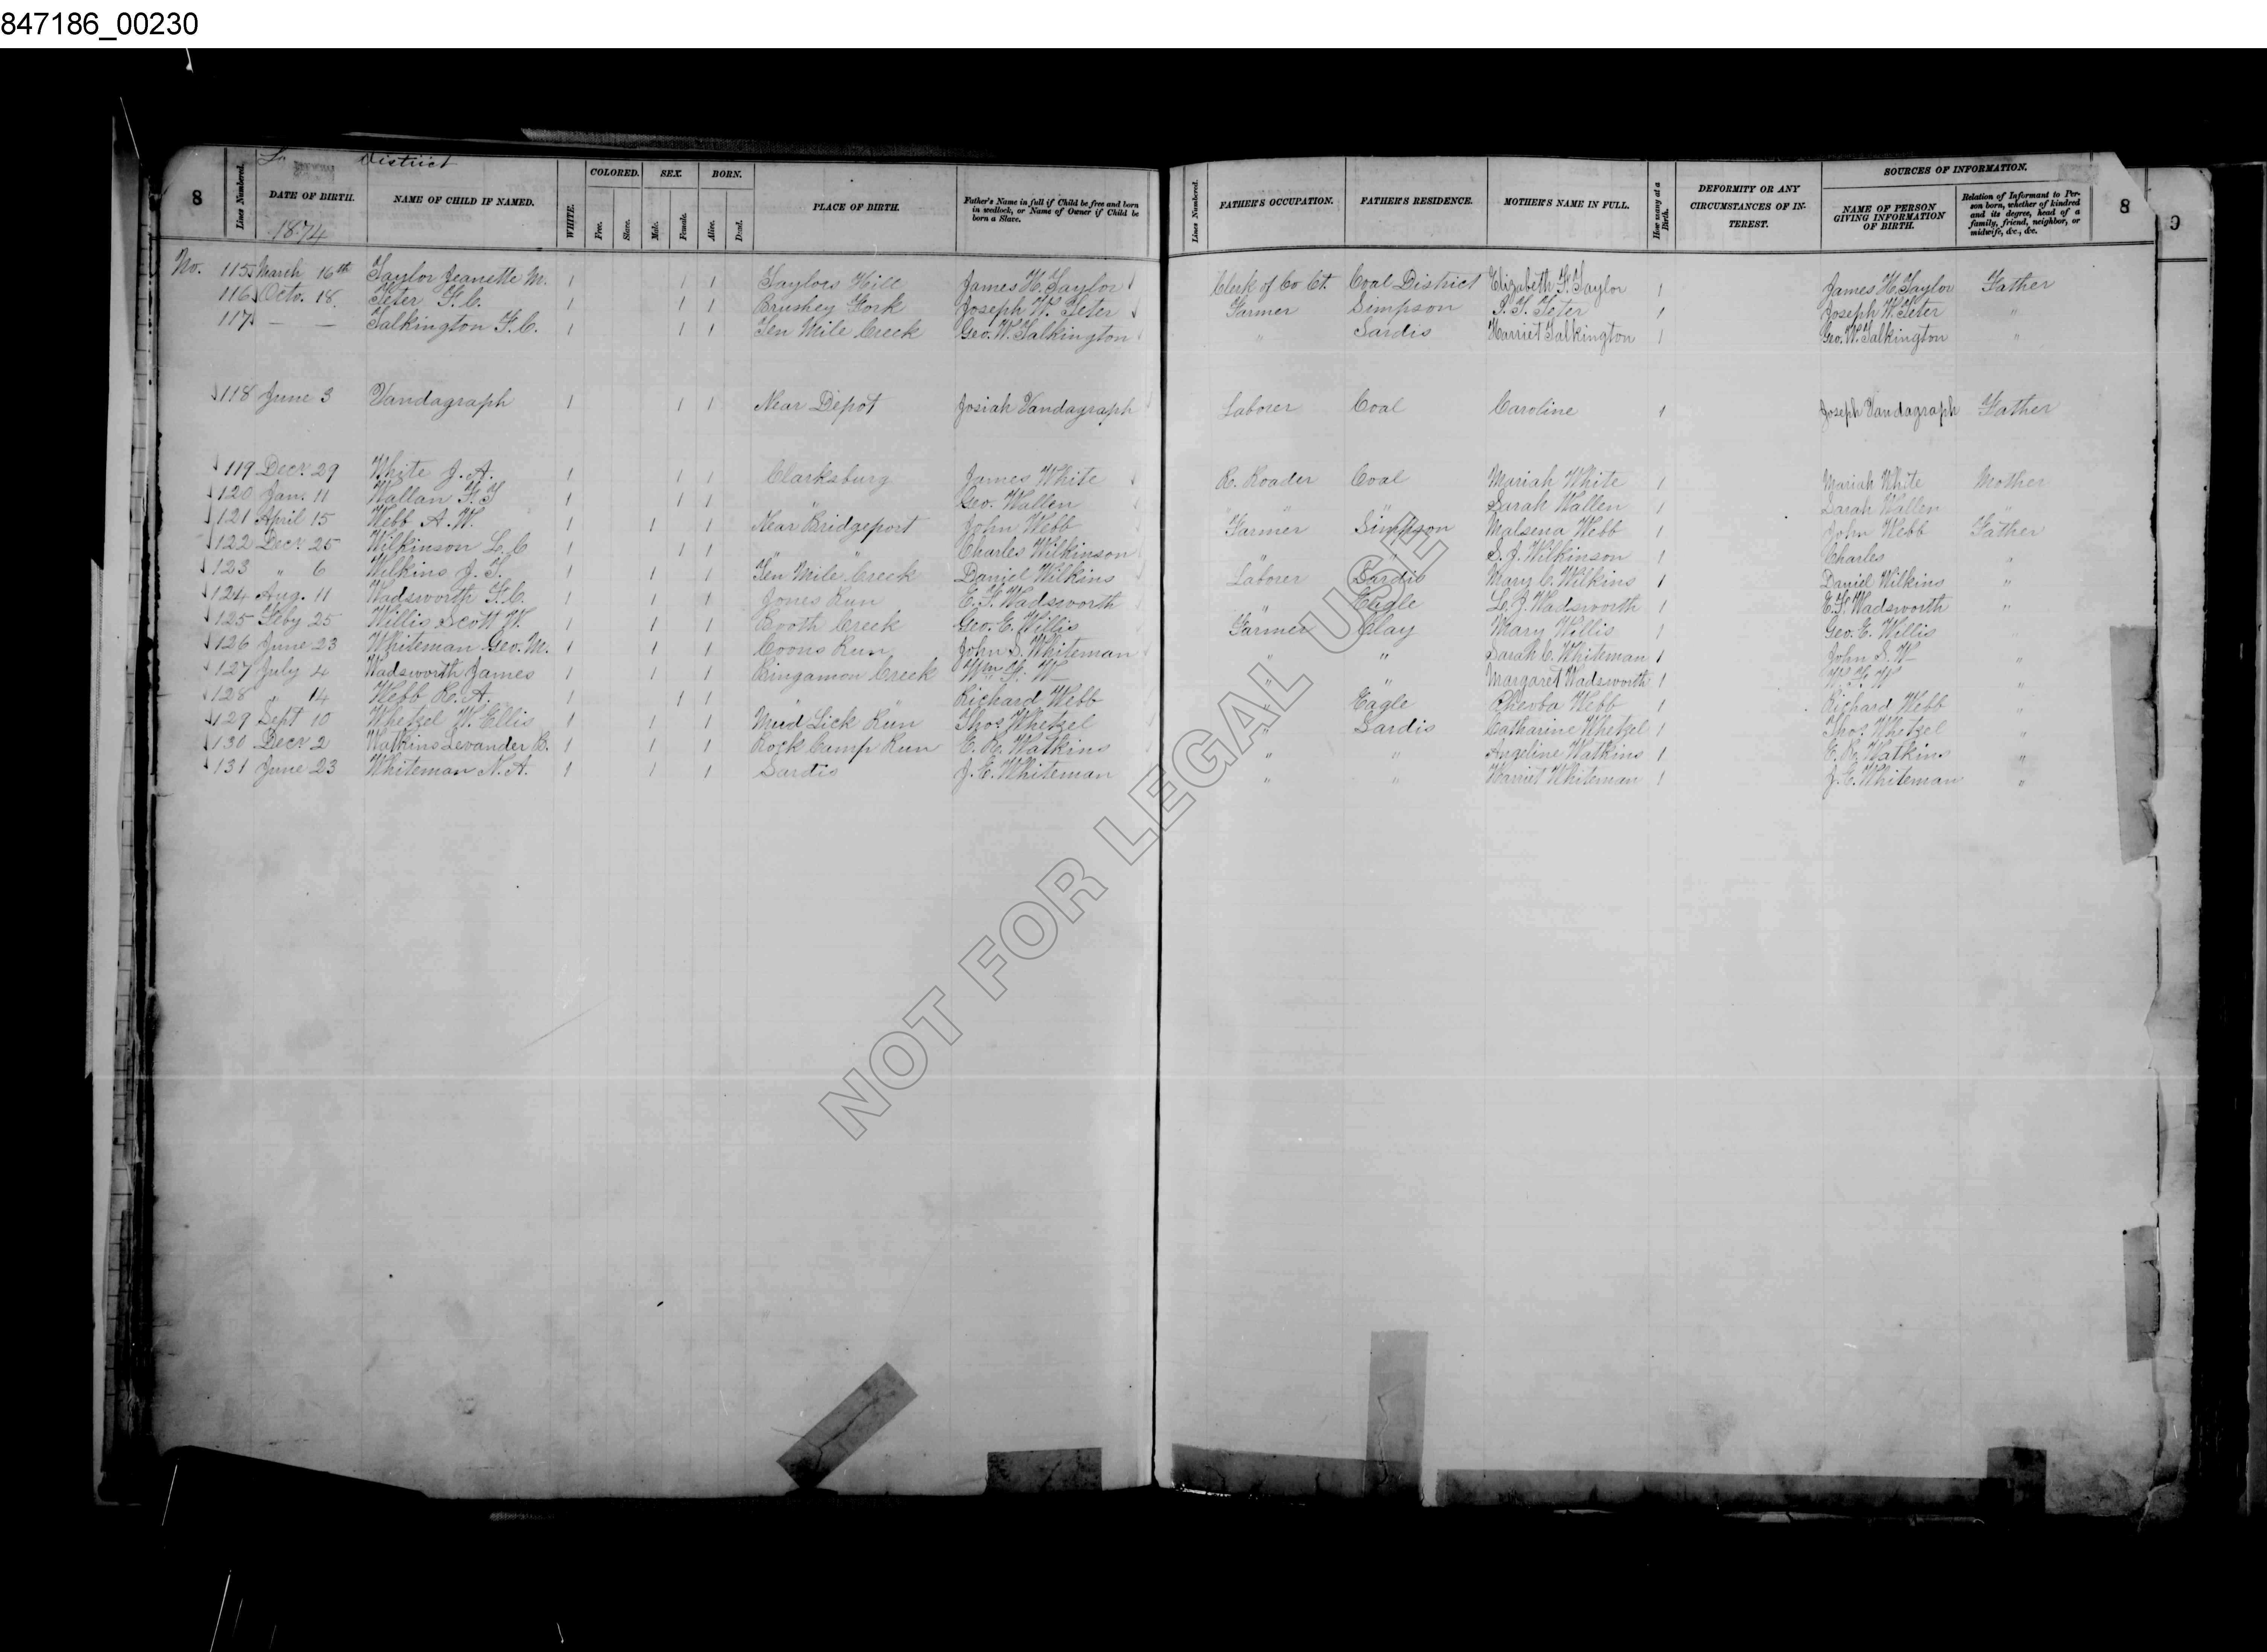 847186_00230
District
8
Lines Numbered.
DATE OF BIRTH.
1874
NAME OF CHILD IF NAMED.
WHITE.
COLORED.
Free.
Slave.
SEX.
Male.
Female.
BORN.
Alive.
Dead.
PLACE OF BIRTH.
Father's Name in full if Child be free and born in wedlock, or Name of Owner if Child be born a Slave.
Lines Numbered.
FATHER'S OCCUPATION.
FATHER'S RESIDENCE.
MOTHER'S NAME IN FULL.
How many at a Birth.
DEFORMITY OR ANY CIRCUMSTANCES OF INTEREST.
SOURCES OF INFORMATION.
NAME OF PERSON GIVING INFORMATION OF BIRTH.
Relation of Informant to Person born, whether of kindred and its degree, head of a family, friend, neighbor, or midwife, &c., &c.
8
9
No. 115 March 16th Taylor Jeanette M. 1 1 1 Taylors Hill James H. Taylor Clerk of Co Ct. Coal District Elizabeth F. Taylor 1 James H. Taylor Father
116 Octo. 18. Teter F. C. 1 1 1 Brushey Fork Joseph W. Teter Farmer Simpson S. T. Teter 1 Joseph W. Teter "
117 — — Talkington F. C. 1 1 1 Ten Mile Creek Geo. W. Talkington " Sardis Harriet Talkington 1 Geo. W. Talkington "
118 June 3 Vandagraph 1 1 1 Near Depot Josiah Vandagraph Laborer Coal Caroline 1 Joseph Vandagraph Father
119 Decr. 29 White J. A. 1 1 1 Clarksburg James White R. Roader Coal Mariah White 1 Mariah White Mother
120 Jan. 11 Wallan F. T 1 1 1 " Geo. Wallen " " " Sarah Wallen 1 Sarah Wallen "
121 April 15 Webb A. W. 1 1 1 Near Bridgeport John Webb Farmer Simpson Malsena Webb 1 John Webb Father
122 Decr. 25 Wilkinson L. C 1 1 1 " " Charles Wilkinson " " S. J. Wilkinson 1 Charles "
123 " 6 Wilkins J. T. 1 1 1 Ten Mile Creek Daniel Wilkins Laborer Sardis Mary C. Wilkins 1 Daniel Wilkins "
124 Aug. 11 Wadsworth F. C. 1 1 1 Jones Run E. F. Wadsworth " Eagle L. J. Wadsworth 1 E. F. Wadsworth "
125 Feby 25 Willis Scott W. 1 1 1 Booth Creek Geo. E. Willis Farmer Clay Mary Willis 1 Geo. E. Willis
126 June 23 Whiteman Geo. M. 1 1 1 Coons Run John S. Whiteman " " Sarah C. Whiteman 1 John S. W— "
127 July 4 Wadsworth James 1 1 1 Bingamon Creek Wm. F. W— " " Margaret Wadsworth 1 W. F. W "
128 " 14 Webb R. A. 1 1 1 " Richard Webb " Eagle Webb 1 Richard Webb "
129 Sept 10 Whetzel W. Ellis 1 1 1 Mud Lick Run Thos. Whetzel " Sardis Catharine Whetzel 1 Thos. Whetzel "
130 Decr 2 Watkins Levander B. 1 1 1 Rock Camp Run E. R. Watkins " " Angeline Watkins 1 E. R. Watkins "
131 June 23 Whiteman N. A. 1 1 1 Sardis J. E. Whiteman " " Harriet Whiteman 1 J. E. Whiteman "
NOT FOR LEGAL USE